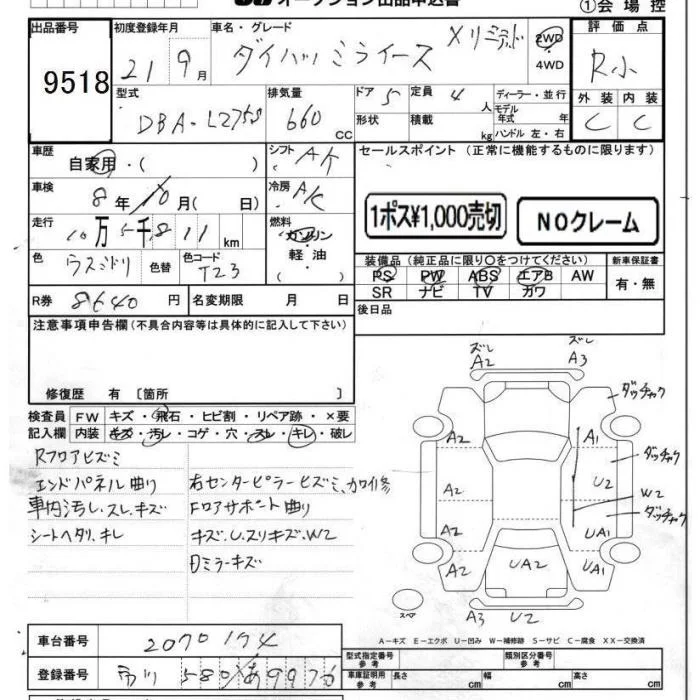 オークション出品申込書
①会場控
出品番号 9518
初度登録年月 21 9月
車名・グレード ダイハツ ミライース Xリミテッド
2WD・4WD
評価点 R小
外装 C 内装 C
型式 DBA-L275S
排気量 660 cc
ドア 5 定員 4人
形状 積載 kg
ディーラー・並行
モデル年式 年
ハンドル 左・右
車歴 自家用・( )
シフト A/t
車検 8年10月( 日)
冷房 A/C
走行 10万5千811km
燃料 ガソリン 軽油 ( )
色 ウスミドリ 色替
色コード T23
R券 8640円
名変期限 月 日
セールスポイント (正常に機能するものに限ります)
1ポス¥1,000売切
NOクレーム
装備品 (純正品に限り○をつけてください)
PS PW ABS エアB AW
SR ナビ TV カワ
新車保証書 有・無
後日品
注意事項申告欄(不具合内容等は具体的に記入して下さい)
修復歴 有 〔箇所 〕
検査員記入欄
FW キズ・飛石・ヒビ割・リペア跡・×要
内装 キズ・汚レ・コゲ・穴・スレ・キレ・破レ
Rフロアヒズミ
エンドパネル曲り
車内汚レ、スレ、キズ
シートヘタリ、キレ
右センターピラーヒズミ、カロ修
Fロアサポート曲り
キズ、U、スリキズ、W2
Dミラーキズ
ズレ A2
ズレ A3
ダッチャク
A2 A1 ダッチャク
A2 U2 W2
A2 UA1 ダッチャク
A2 UA2 UA1
スペア
A3 U2
A-キズ E-エクボ U-凹み W-補修跡 S-サビ C-腐食 XX-交換済
車台番号 2070174
登録番号 580 あ 9976
型式指定番号 参考
類別区分番号 参考
車庫証明用 参考 長さ cm 幅 cm 高さ cm